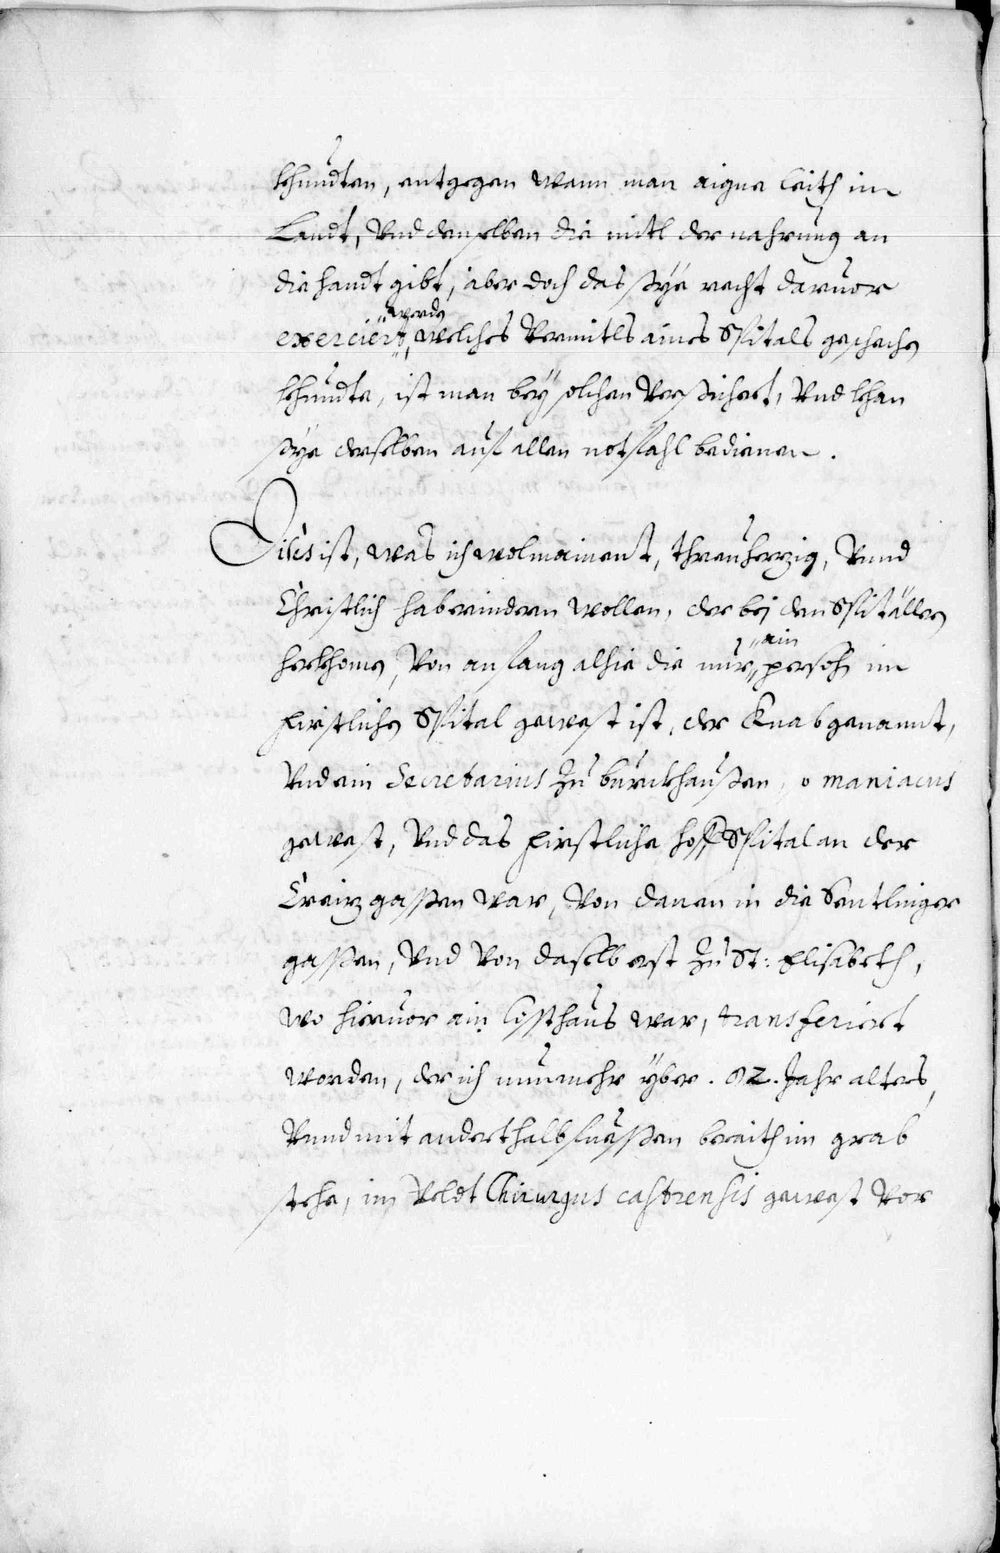 khundten, entgegen wann man aigne leith im
Landt, Vnd denselben die mitl der nahrung an
die handt gibt, aber doch das sye recht daruor
werdn
exerciert, welches Vermitls aines Spitals geschechen
khundte, ist man bey solchen Versichert, Vnd khan
sye derselben auf allen notfahl bedienen.
Dises ist, was ich wolmainent, threuherzig, Vnnd
Christlich hab erindern wollen, der bej den Spitällen
herkhomen, Von anfang alhie die nur
ain
persohn im
firstlichen Spital gewest ist, der Knab genannt,
Vnd ein Secretarius zu burckhaußen, o maniacus
gewest, Vnd das firstliche hoff Spital an der
Creizgaßen war, Von danen in die Sentlinger
gaßen, Vnd Von daselb erst zu St: Elisabeth,
wo hieuor ain Costhaus war, transferiert
worden, der ich nunmehr yber .82. Jahr alters,
Vnnd mit anderthalb fueßen beraith im grab
stehe, im Veldt Chirurgus castrensis gewest Vor